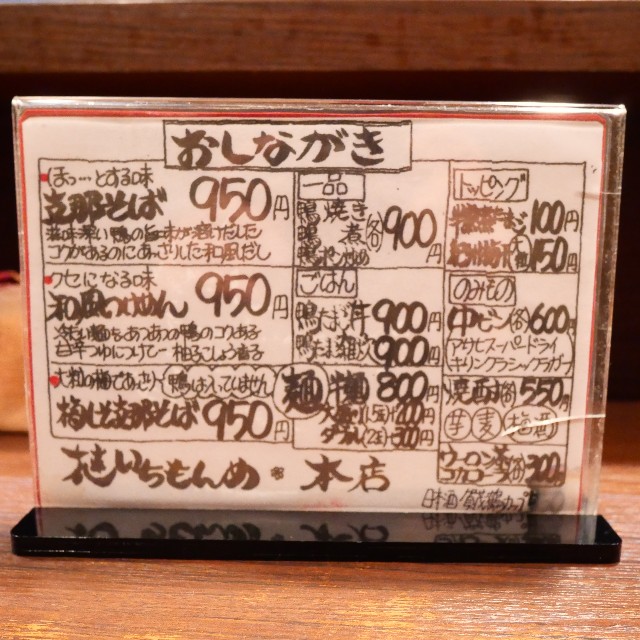 おしながき
ほっ…とする味
支那そば 950円
滋味深い鴨の旨味が溶けだした
コクがあるのにあっさりした和風だし
クセになる味
和風つけめん 950円
冷たい麺をあつあつの鴨のコクある
甘辛つゆにつけて 柚子こしょう香る
大粒の梅であっさり 鴨は入っていません
梅しそ支那そば 950円
一品
鴨焼き
鴨煮
各900円
ごはん
鴨たま丼 900円
鴨たま雑炊 900円
麺類 800円
大盛り(1.5玉)
ダブル(2玉)
トッピング
100円
150円
のみもの
中ビン(各)600円
アサヒスーパードライ
キリンクラシックラガー
焼酎(各)550円
芋 麦 梅酒
ウーロン茶
コカコーラ
(各)300円
いちもんめ 本店
日本酒
カップ